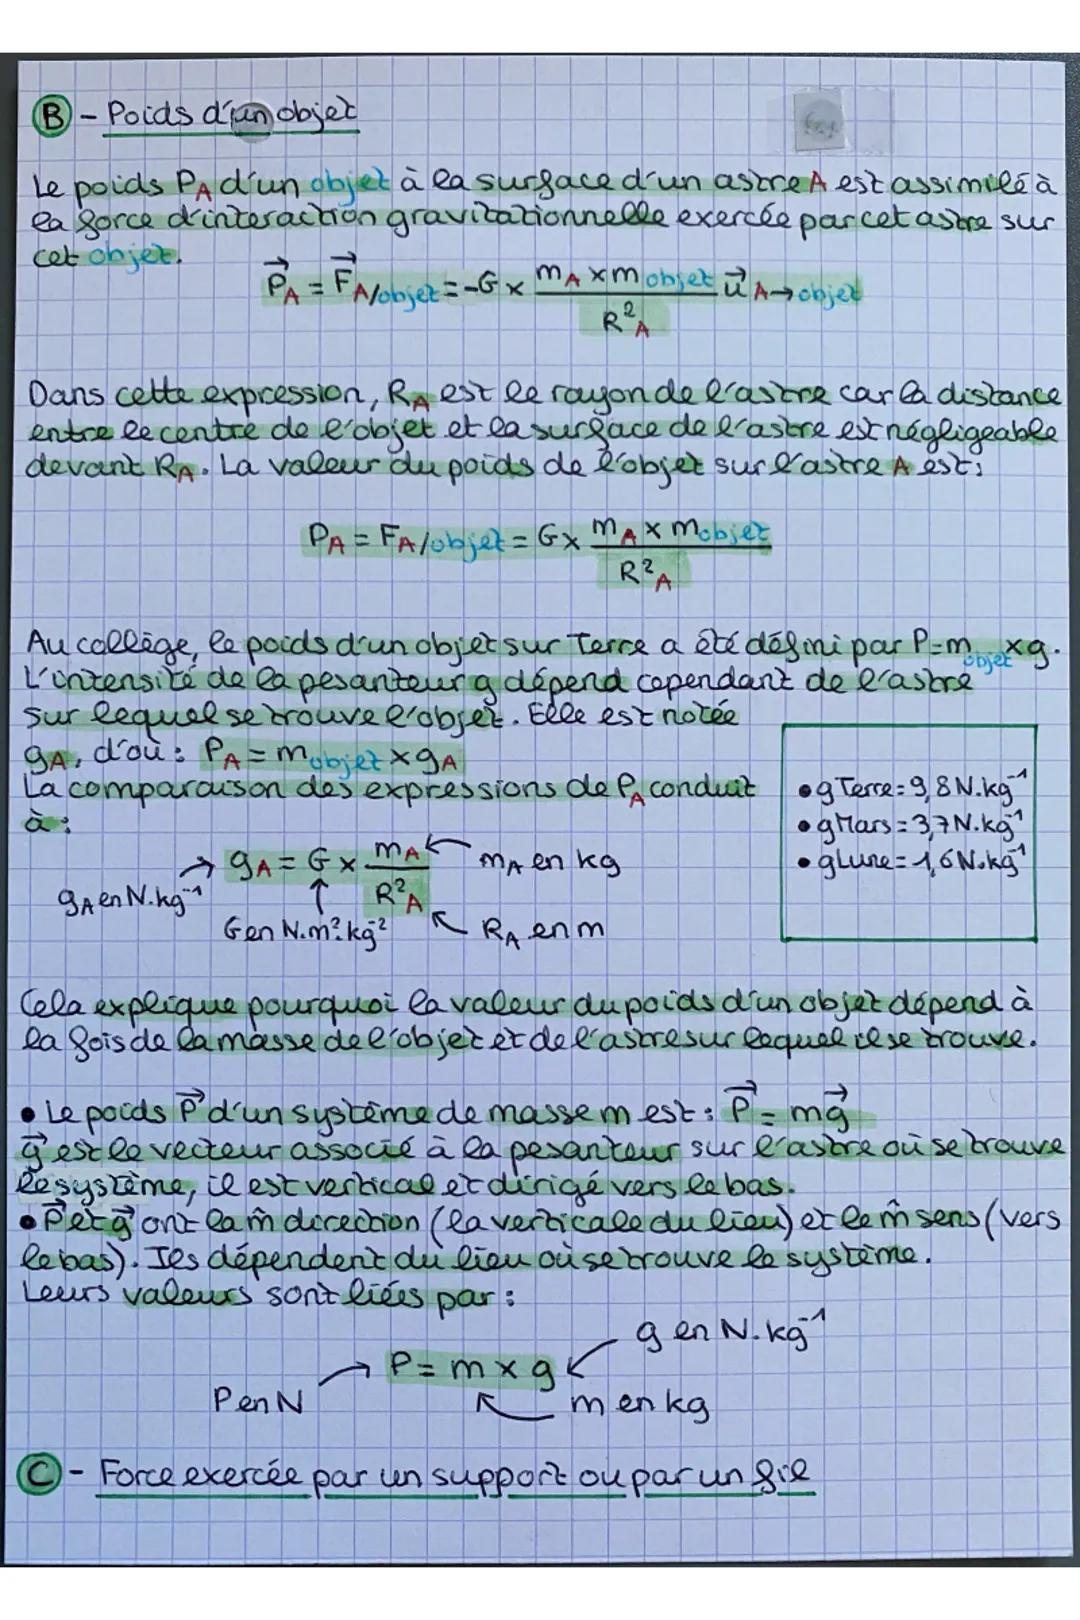 B - Poids d'un objet
Le poids P_A d'un objet à la surface d'un astre A est assimilé à
la force d'interaction gravitationnelle exercée par cet astre sur
cet objet.
P⃗_A = F⃗_A/objet = -G × (m_A × m_objet / R²_A) u⃗_A→objet
Dans cette expression, R_A est le rayon de l'astre car la distance
entre le centre de l'objet et la surface de l'astre est négligeable
devant R_A. La valeur du poids de l'objet sur l'astre A est:
P_A = F_A/objet = G × m_A × m_objet / R²_A
Au collège, le poids d'un objet sur Terre a été défini par P=m_objet × g.
L'intensité de la pesanteur g dépend cependant de l'astre
sur lequel se trouve l'objet. Elle est notée
g_A, d'où : P_A = m_objet × g_A
La comparaison des expressions de P_A conduit
à :
g_A = G × m_A / R²_A
m_A en kg
g_A en N.kg⁻¹
G en N.m².kg⁻²
R_A en m
• g Terre = 9,8 N.kg⁻¹
• g Mars = 3,7 N.kg⁻¹
• g Lune = 1,6 N.kg⁻¹
Cela explique pourquoi la valeur du poids d'un objet dépend à
la fois de la masse de l'objet et de l'astre sur lequel il se trouve.
• Le poids P⃗ d'un système de masse m est : P⃗ = mg⃗
g⃗ est le vecteur associé à la pesanteur sur l'astre où se trouve
le système, il est vertical et dirigé vers le bas.
• P⃗ et g⃗ ont la m̂ direction (la verticale du lieu) et le m̂ sens (vers
le bas). Ils dépendent du lieu où se trouve le système.
Leurs valeurs sont liées par :
g en N.kg⁻¹
P = m × g
P en N
m en kg
C - Force exercée par un support ou par un fil